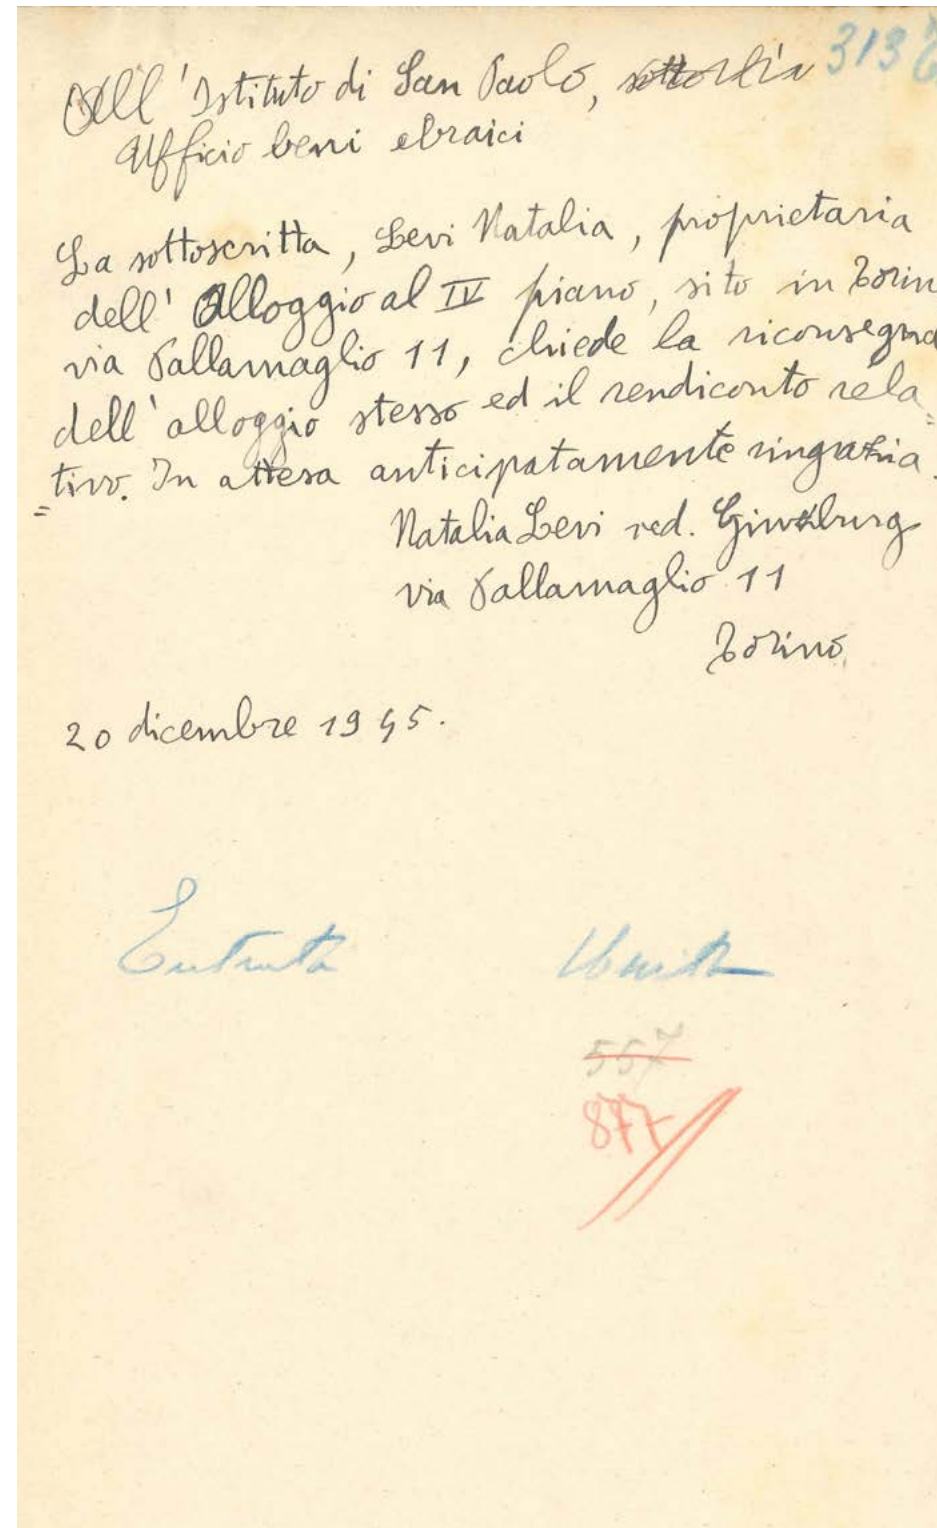 313
All'Istituto di San Paolo,
Ufficio beni ebraici
La sottoscritta, Levi Natalia, proprietaria
dell'Alloggio al IV piano, sito in Torin
via Pallamaglio 11, chiede la riconsegna
dell'alloggio stesso ed il rendiconto rela=
=tivo. In attesa anticipatamente ringrazia.
Natalia Levi ved. Ginzburg
via Pallamaglio 11
Torino
20 dicembre 1945.
Entrata
557
877